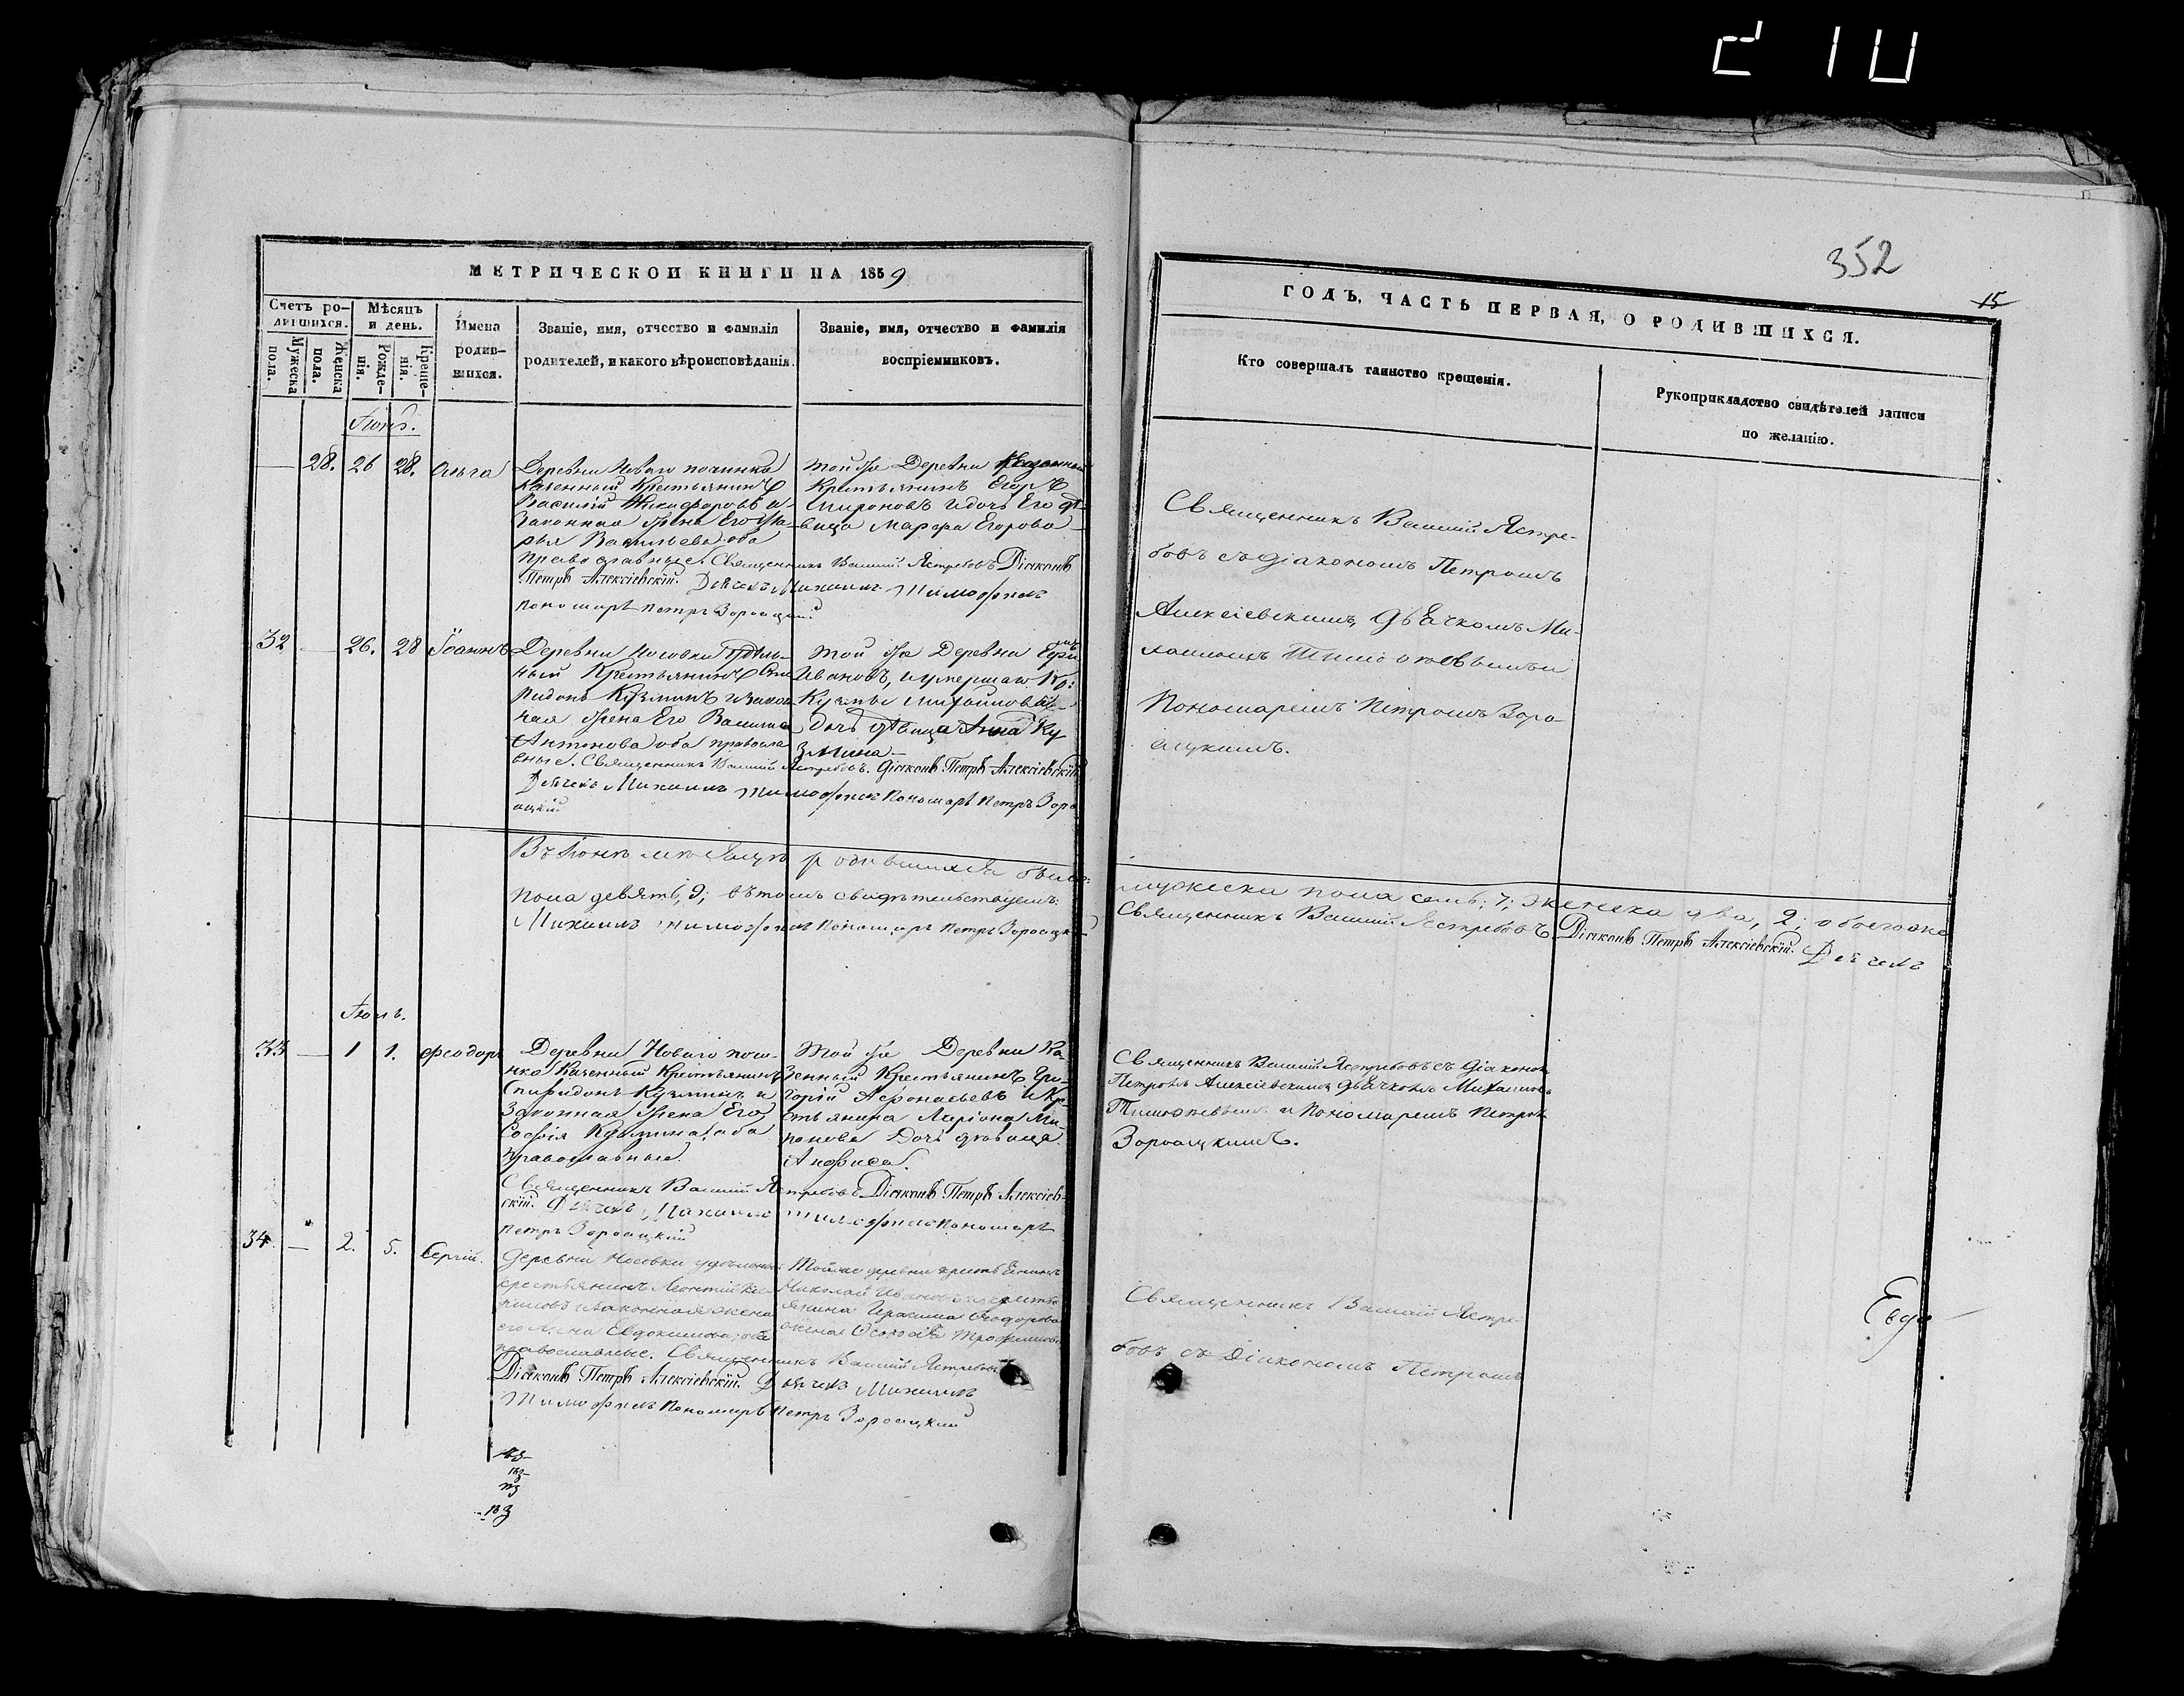 210
352
15
МЕТРИЧЕСКОЙ КНИГИ НА 1859
ГОДЪ, ЧАСТЬ ПЕРВАЯ, О РОДИВШИХСЯ.
Счетъ ро-
дившихся.
Мужеска пола.
Женска пола.
Мѣсяцъ
и день.
Рожде-
нія.
Креще-
нія.
Имена
родив-
шихся.
Званіе, имя, отчество и фамилія
родителей, и какого вѣроисповѣданія.
Званіе, имя, отчество и фамилія
воспріемниковъ.
Кто совершалъ таинство крещенія.
Рукоприкладство свидѣтелей записи
по желанію.
Іюнь.
28. 26 28. Ольга
Деревни Новаго починка
казенный Крестьянинъ
Василій Никифоровъ и
Законная жена Его Ма-
рья Васильева оба
православные. Священникъ Василий Ястребовъ Діаконъ
Петръ Алексіевскій. Дьячекъ Михаилъ
Пономарь Петръ
Той же Деревни Казенный
Крестьянинъ Егоръ
Мироновъ и дочь Его дѣ-
вица Марфа Егорова
Священникъ Василий Ястре-
бовъ съ діакономъ Петромъ
Алексіевскимъ, дьячкомъ Ми-
хаиломъ
Пономаремъ Петромъ
32 — 26. 28 Іоаннъ
Деревни Носовки Удѣль-
ный Крестьянинъ Спи-
ридонъ Кузминъ и закон-
ная жена Его Васились
Антонова оба правосла-
вные. Священникъ Василий Ястребовъ. Діаконъ Петръ Алексіевскій
Дьячекъ Михаилъ Пономарь Петръ
Той же Деревни
Ивановъ, и умершаго Кр:
Кузмы Михайлова
Дочь дѣвица Анна Ку
змина
Въ Іюнѣ мѣсяцѣ родившихся было:
мужеска пола семь; 7; женска два, 2; обоего же
пола девять, 9; въ томъ свидѣтельствуемъ:
Священникъ Василий Ястребовъ. Діаконъ Петръ Алексіевскій. Дьячекъ
Михаилъ Пономарь Петръ
Іюль.
33 — 1 1. Феодоръ
Деревни Новаго почи-
нка Казенный Крестьянинъ
Спиридонъ Кузминъ и
Законная жена Его
Софія Кузмина, оба
православные.
Священникъ Василий Ястребовъ Діаконъ Петръ Алексіев-
скій. Дьячекъ Михаилъ Пономарь
Петръ
Той же Деревни Ка-
зенный Крестьянинъ Гри-
горій Афонасьевъ и Кр-
стьянина Ларіона Ми-
ронова Дочь дѣвица
Анфиса.
Священникъ Василий Ястребовъ съ діаконом
Петромъ Алексіевскимъ, дьячкомъ Михаиломъ
и Пономаремъ Петромъ
34 — 2. 5. Сергій.
Деревни Носовки удѣльный
крестьянинъ Леонтій
и законная жена
его Евдокимова, оба
православные. Священникъ Василий Ястребовъ
Діаконъ Петръ Алексіевскій. Дьячекъ Михаилъ
Пономарь Петръ
Той же деревни крестьянинъ
Николай Ивановъ и крестья
янина Герасима Феодорова
жена
Священникъ Василий Ястре-
бовъ съ Діакономъ Петромъ